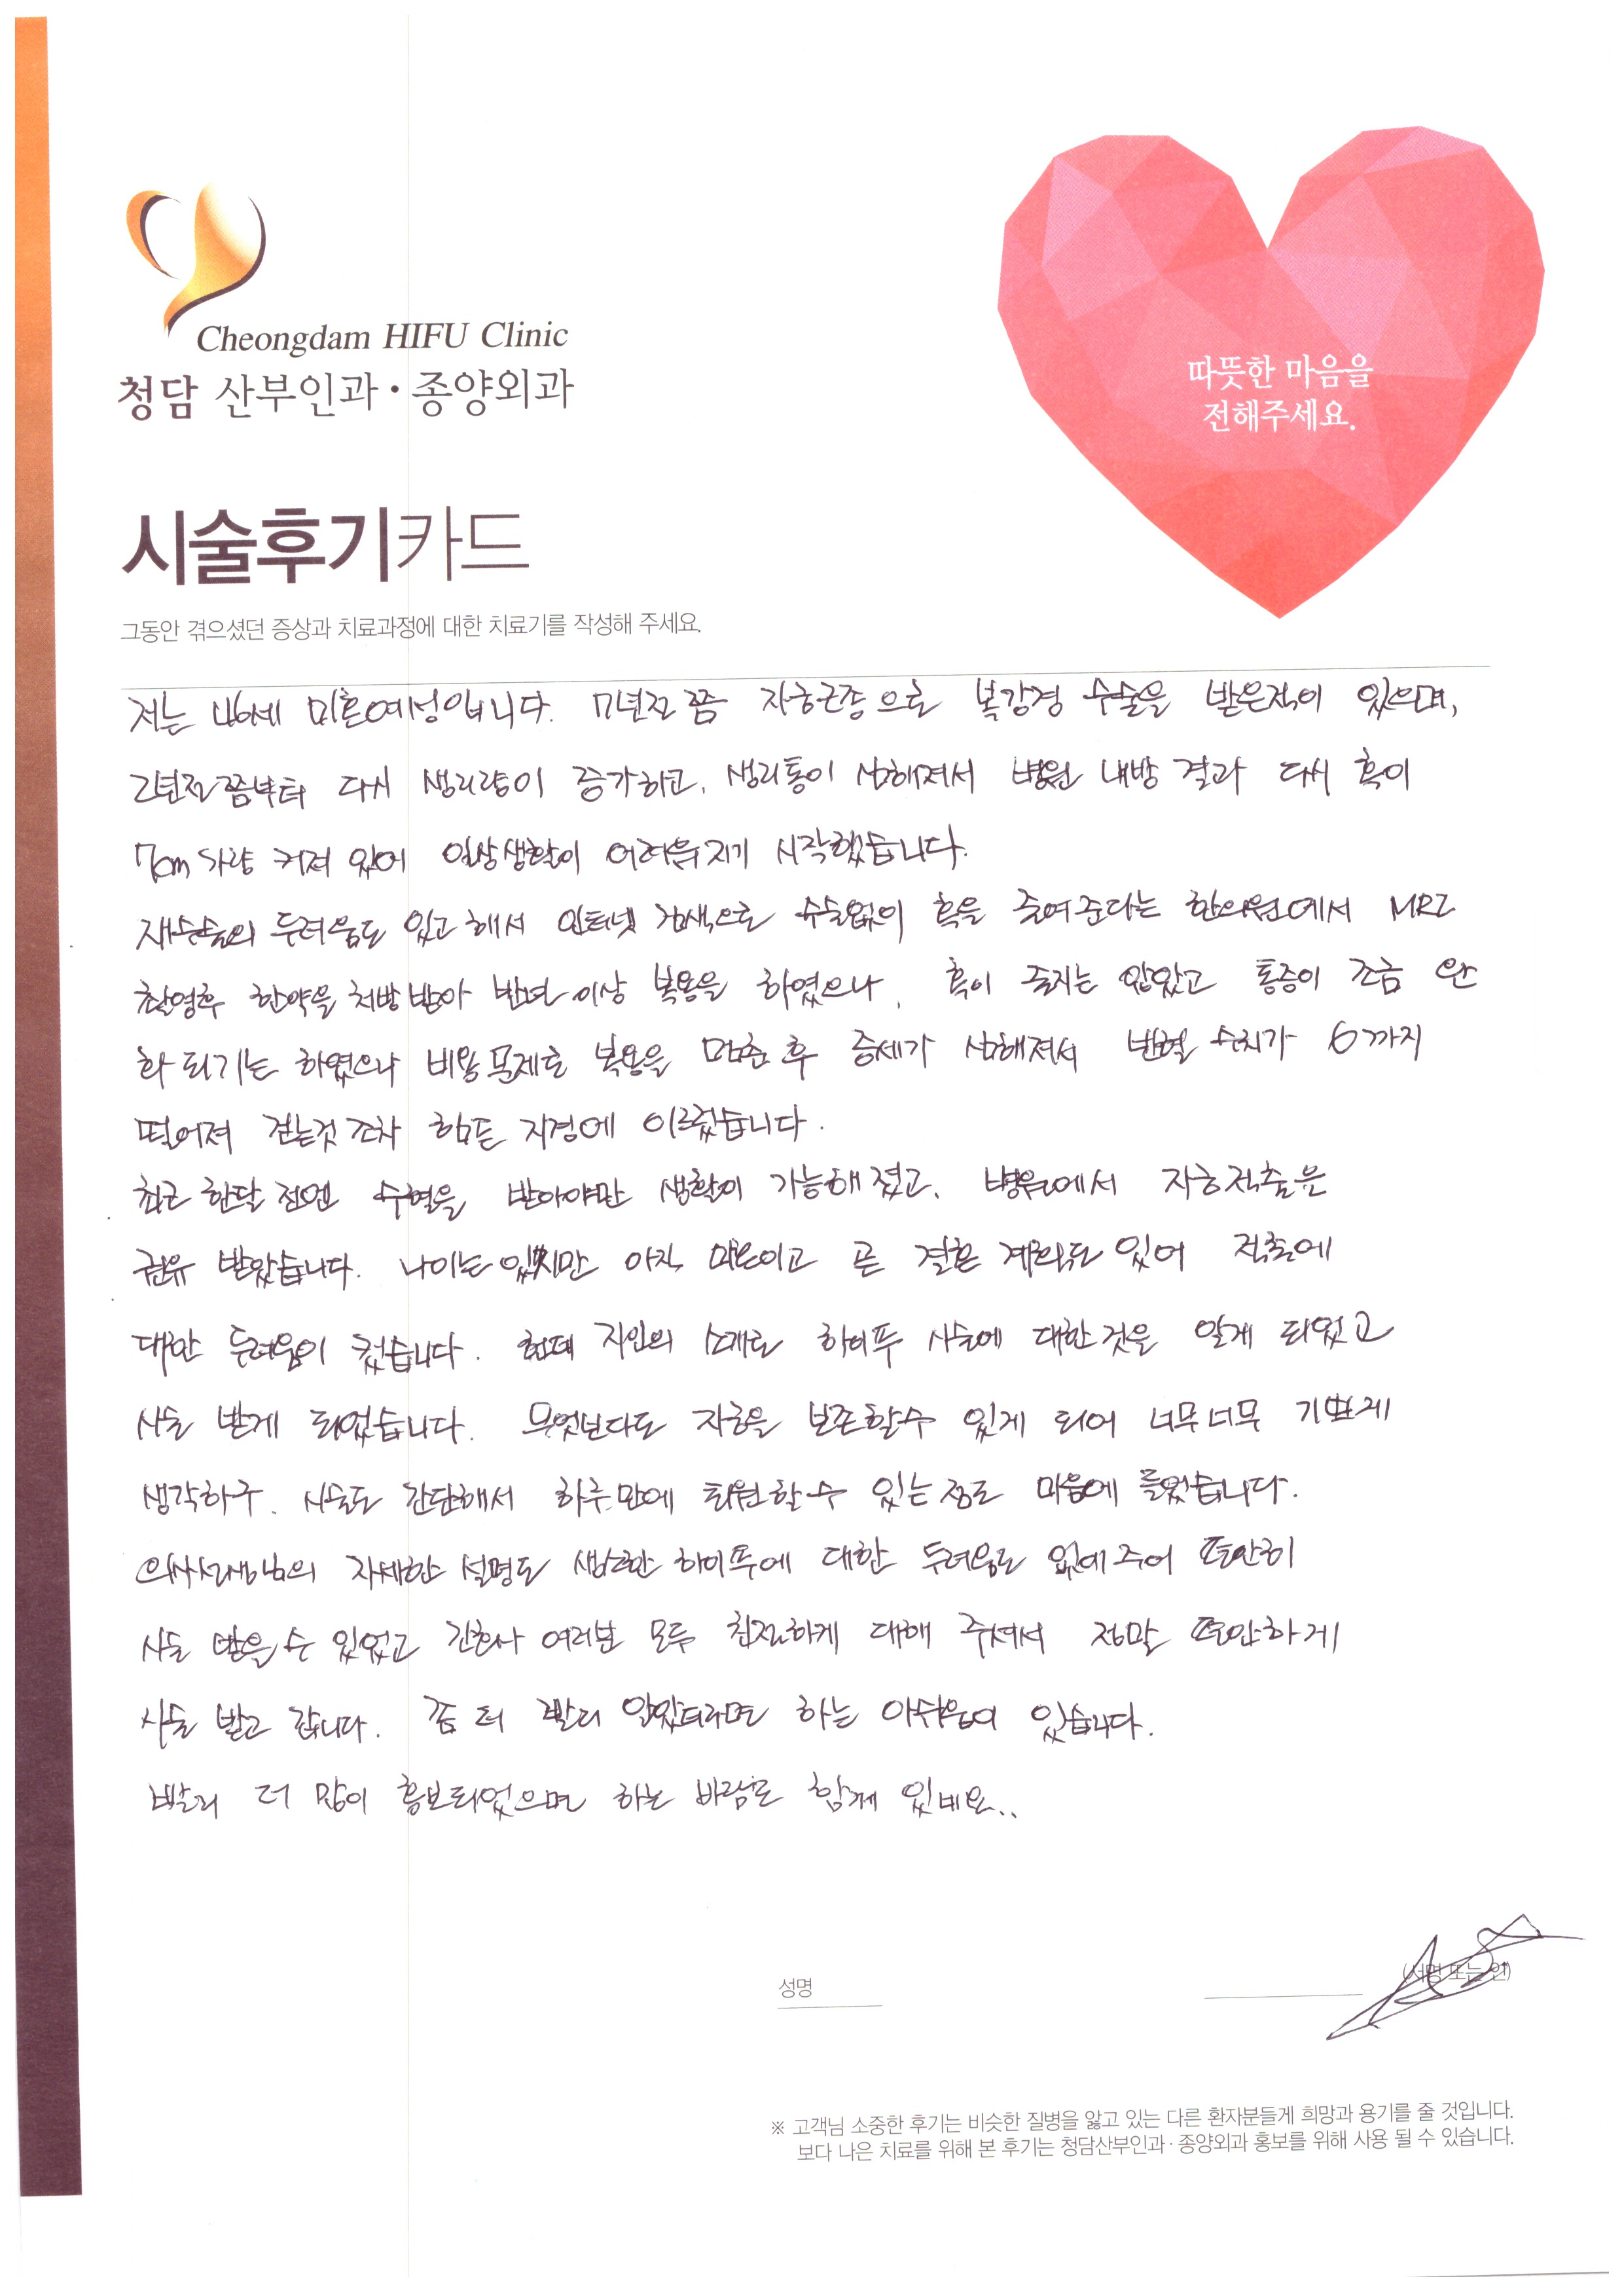 Cheongdam HIFU Clinic
청담 산부인과·종양외과
따뜻한 마음을
전해주세요.
시술후기카드
그동안 겪으셨던 증상과 치료과정에 대한 치료기를 작성해 주세요.
저는 46세 미혼여성입니다. 7년전쯤 자궁근종으로 복강경 수술을 받은적이 있으며,
2년전쯤부터 다시 생리량이 증가하고, 생리통이 심해져서 병원 내방 결과 다시 혹이
7cm 가량 커져 있어 일상생활이 어려워지기 시작했습니다.
재수술의 두려움도 있고 해서 인터넷 검색으로 수술없이 혹을 줄여준다는 한의원에서 MRI
촬영후 한약을 처방받아 반년이상 복용을 하였으나, 혹이 줄지는 않았고 통증이 조금 완
화 되기는 하였으나 비용문제로 복용을 멈춘 후 증세가 심해져서 빈혈 수치가 6까지
떨어져 걷는것조차 힘든 지경에 이르렀습니다.
최근 한달 전엔 수혈을 받아야만 생활이 가능해졌고, 병원에서 자궁적출을
권유 받았습니다. 나이는 있지만 아직 미혼이고 곧 결혼 계획도 있어 적출에
대한 두려움이 컸습니다. 헌데 지인의 소개로 하이푸 시술에 대한것을 알게 되었고
시술 받게 되었습니다. 무엇보다도 자궁을 보존할수 있게 되어 너무너무 기쁘게
생각하구, 시술도 간단해서 하루만에 퇴원할수 있는 점도 마음에 들었습니다.
의사선생님의 자세한 설명도 생소한 하이푸에 대한 두려움도 없애주어 편안히
시술 받을 수 있었고 간호사 여러분 모두 친절하게 대해 주셔서 정말 편안하게
시술 받고 갑니다. 좀 더 빨리 알았더라면 하는 아쉬움이 있습니다.
빨리 더 많이 홍보되었으면 하는 바람도 함께 있네요..
성명
(서명 또는 인)
※ 고객님 소중한 후기는 비슷한 질병을 앓고 있는 다른 환자분들께 희망과 용기를 줄 것입니다.
보다 나은 치료를 위해 본 후기는 청담산부인과·종양외과 홍보를 위해 사용 될 수 있습니다.